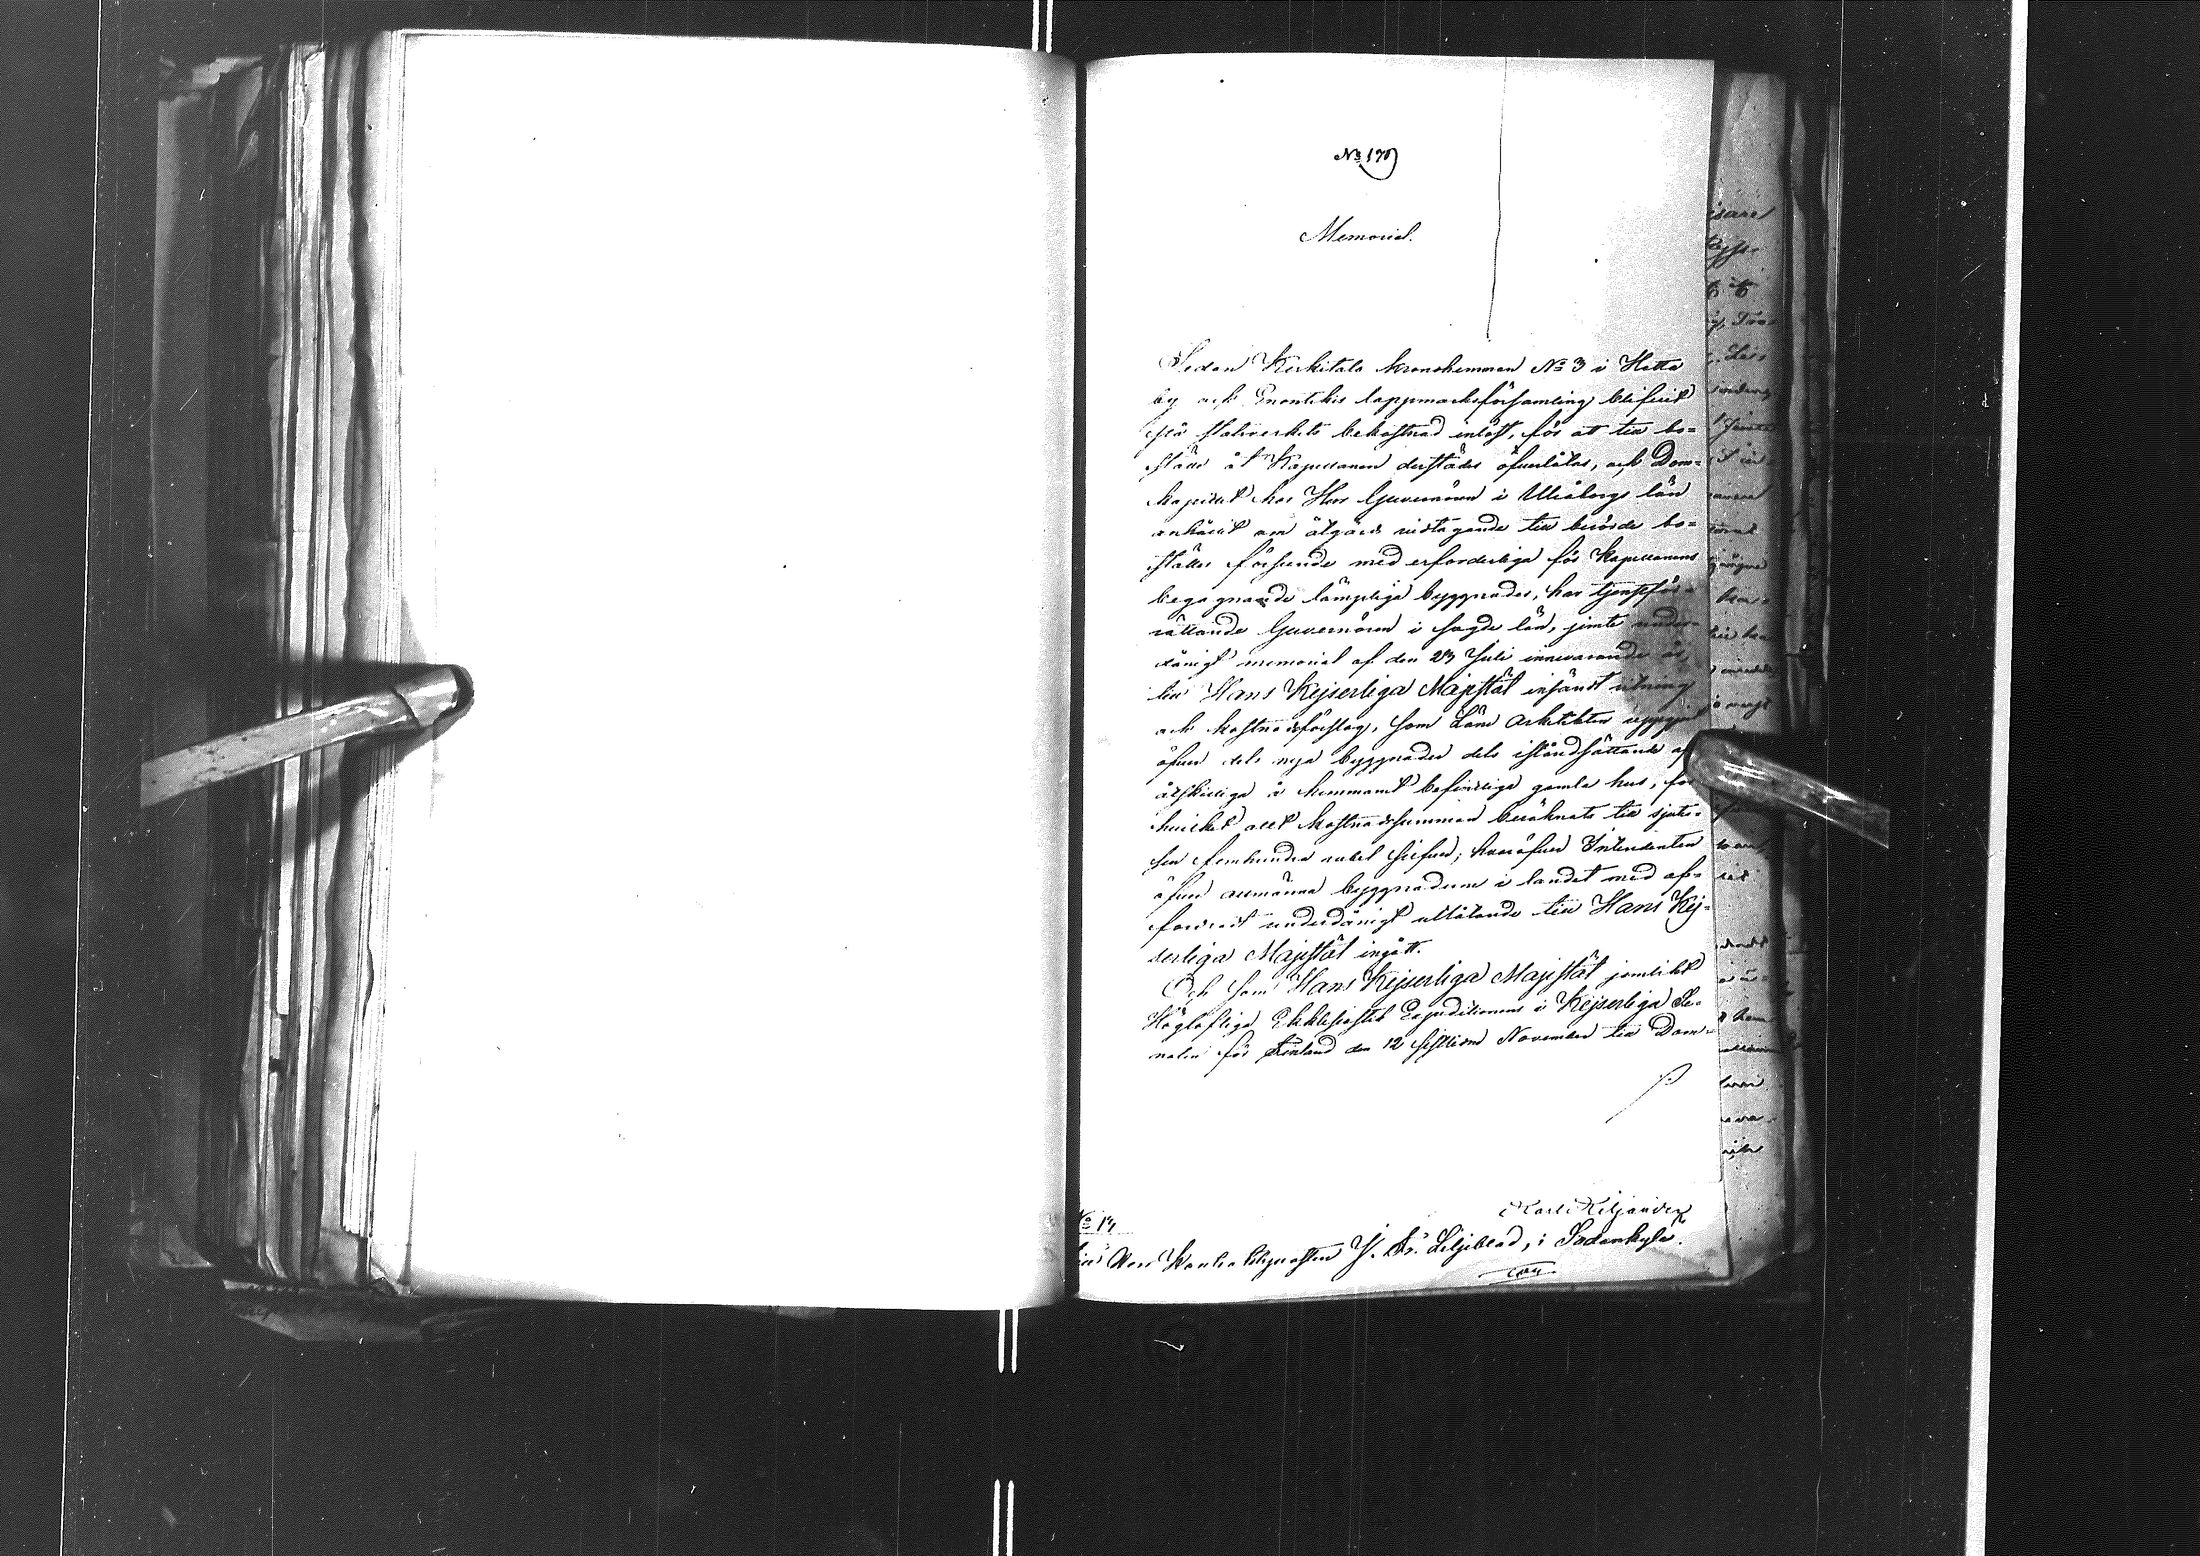 No 170
Memorial.
Sedan Kerkitalo kronohemman No 3 i Hetta
by och Enontekis lappmarksförsamling blifvit
på statsverkets bekostnad inlöst, för att till bo-
ställe åt Kapellanen derstädes öfverlåtas, och Dom-
kapitlet hos Herr Guvernören i Uleåborgs län
anhållit om åtgärds vidtagande till berörde bo-
ställes förseende med erforderliga för Kapellanens
begagnande lämpliga byggnader, har tjenstför-
rättande Guvernören i sagde län, jemte under-
dånigt memorial af den 23 Juli innevarande år,
till Hans Kejserliga Majestät insändt ritning
och kostnadsförslag, som Läns Arkitekten uppgjort
öfver dels nya byggnader dels iståndsättande af
åtskilliga å hemmanet befintliga gamla hus, för
hvilket allt kostnadssumman beräknats till sjutu-
sen femhundra rubel silfver; hvaröfver Intendenten
öfver allmänna byggnaderne i landet med af-
fordradt underdånigt utlåtande till Hans Kej-
serliga Majestät ingått.
Och som Hans Kejserliga Majestät jemlikt
Högloflige Ekklesiastik Expeditionens i Kejserliga Se-
naten för Finland den 12 sistlidne November till Dom-
No 13
Karl Kiljander
Till Herr Kontraktsprosten J. Fr. Liljeblad, i Sodankylä.